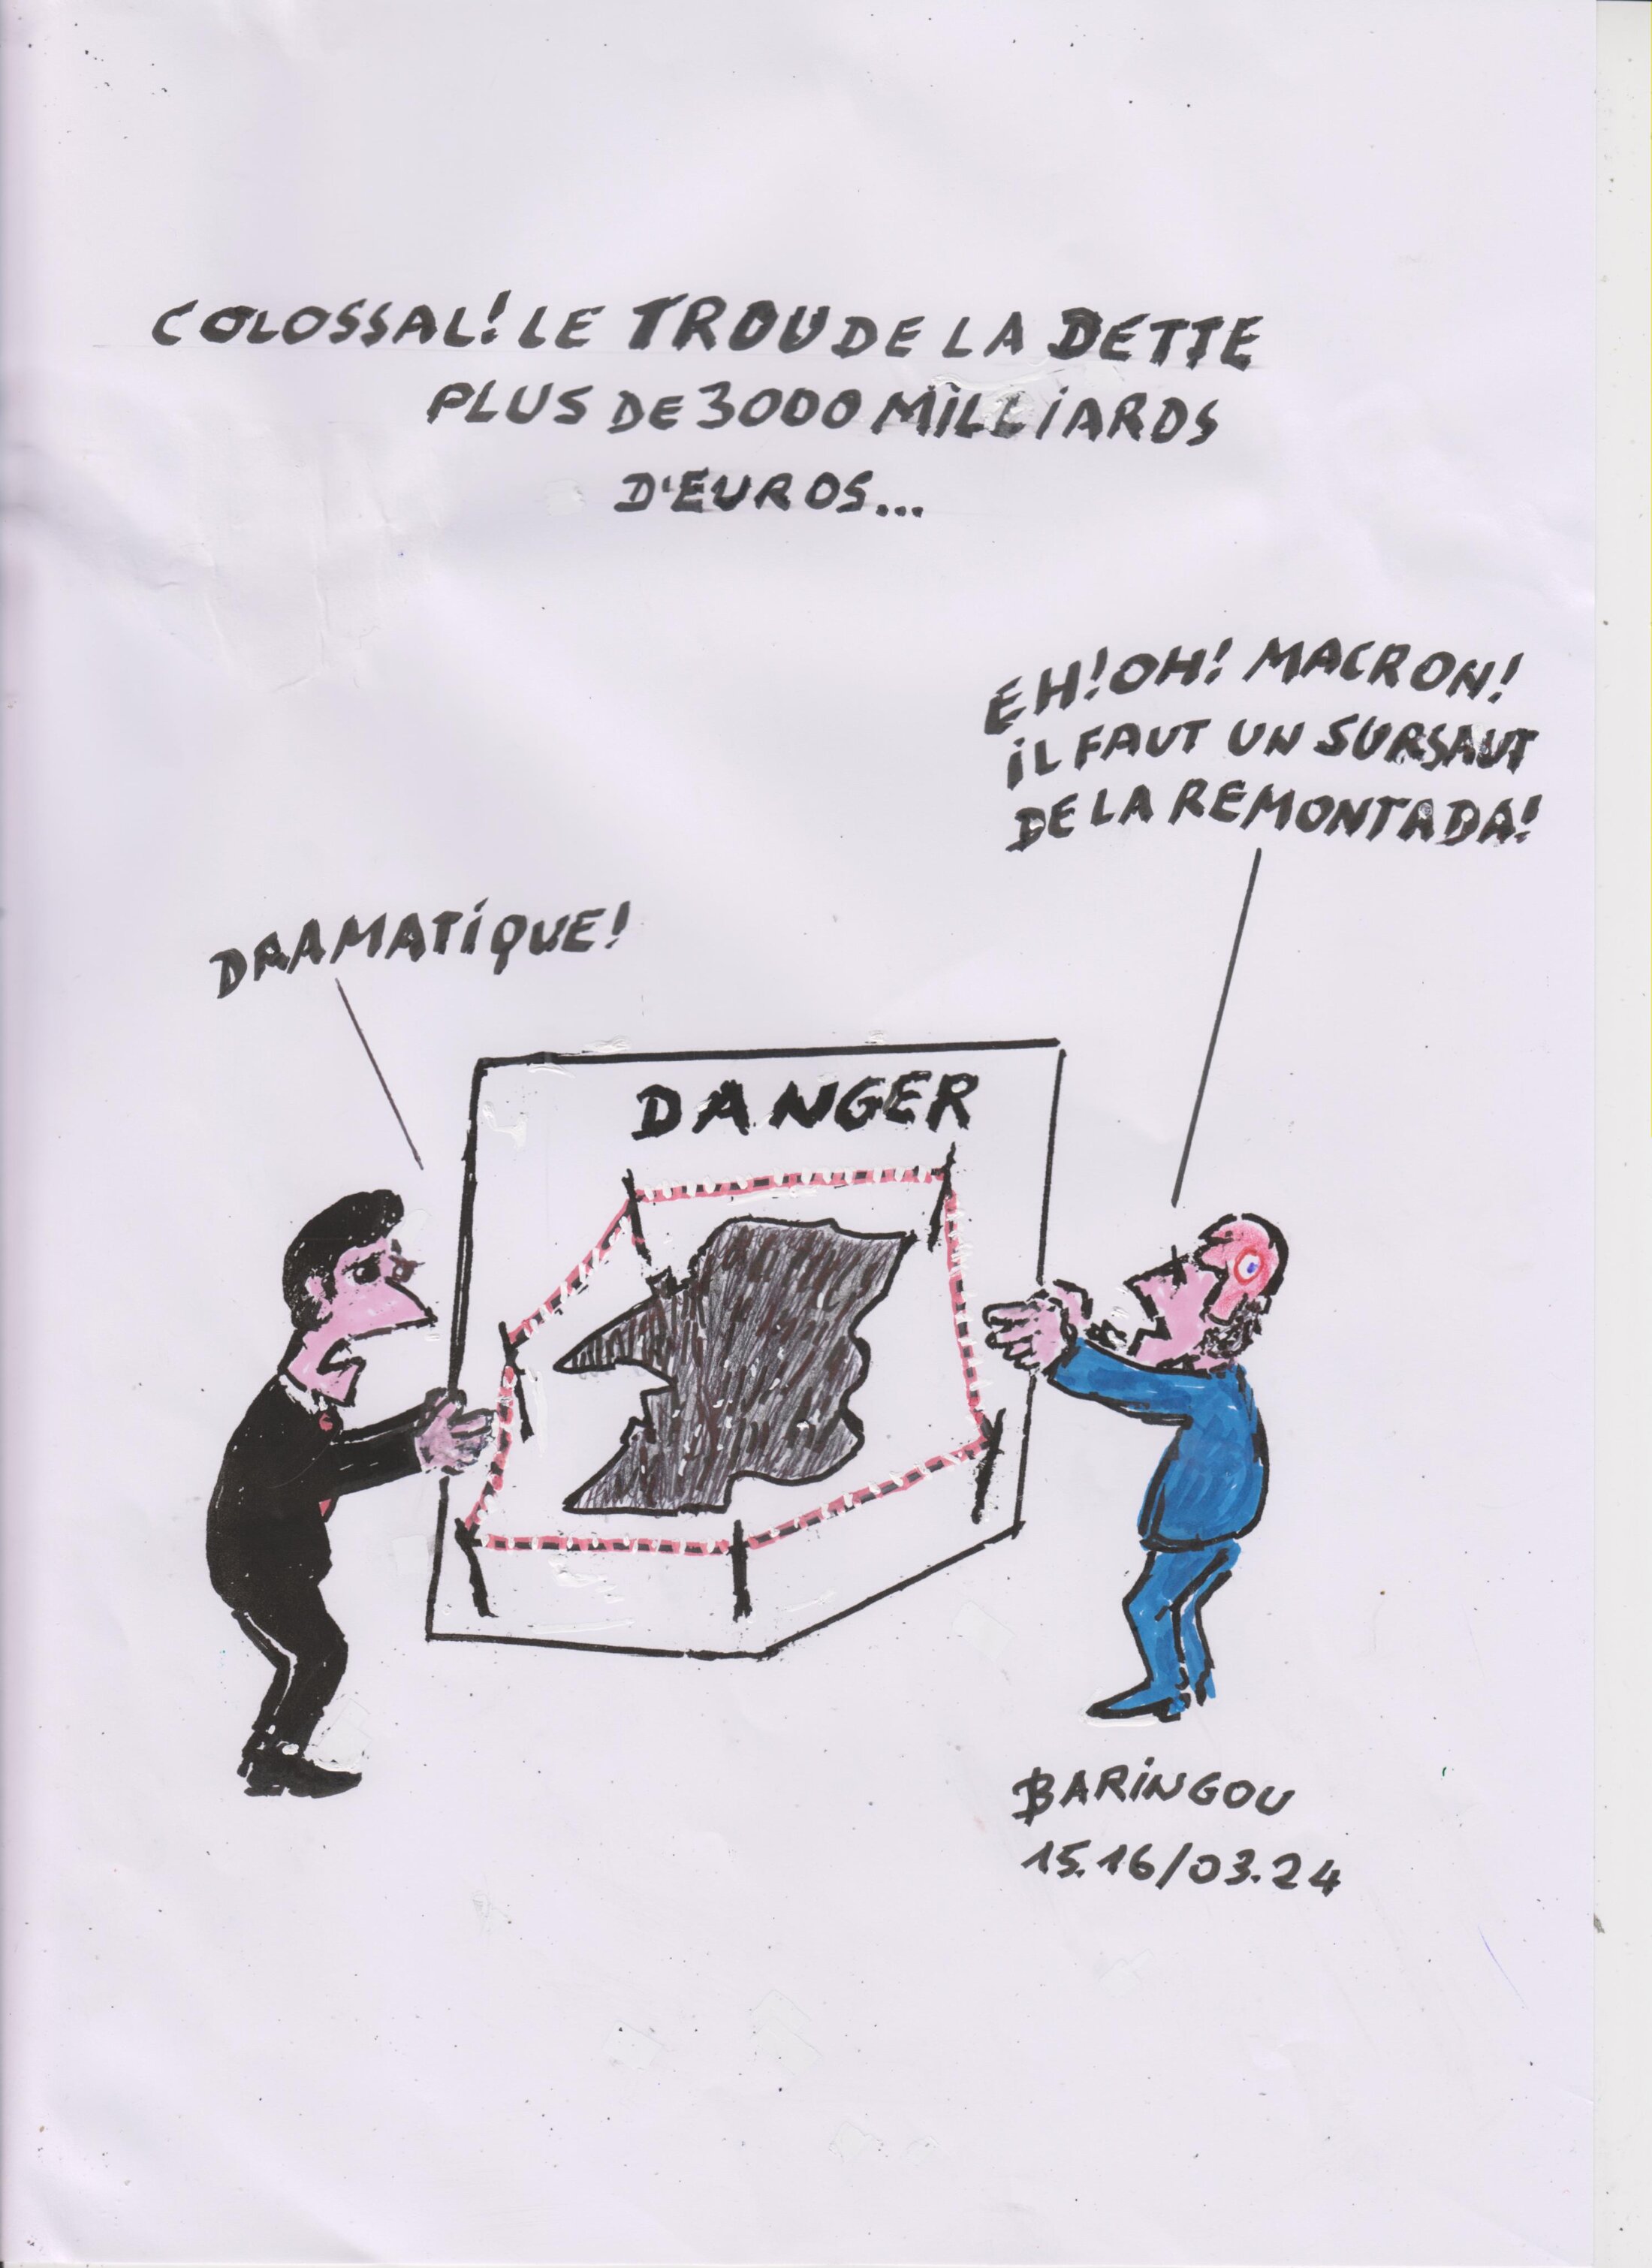 COLOSSAL! LE TROU DE LA DETTE
PLUS DE 3000 MILLIARDS
D'EUROS...
EH! OH! MACRON!
IL FAUT UN SURSAUT
DE LA REMONTADA!
DRAMATIQUE!
DANGER
BARINGOU
15.16/03.24